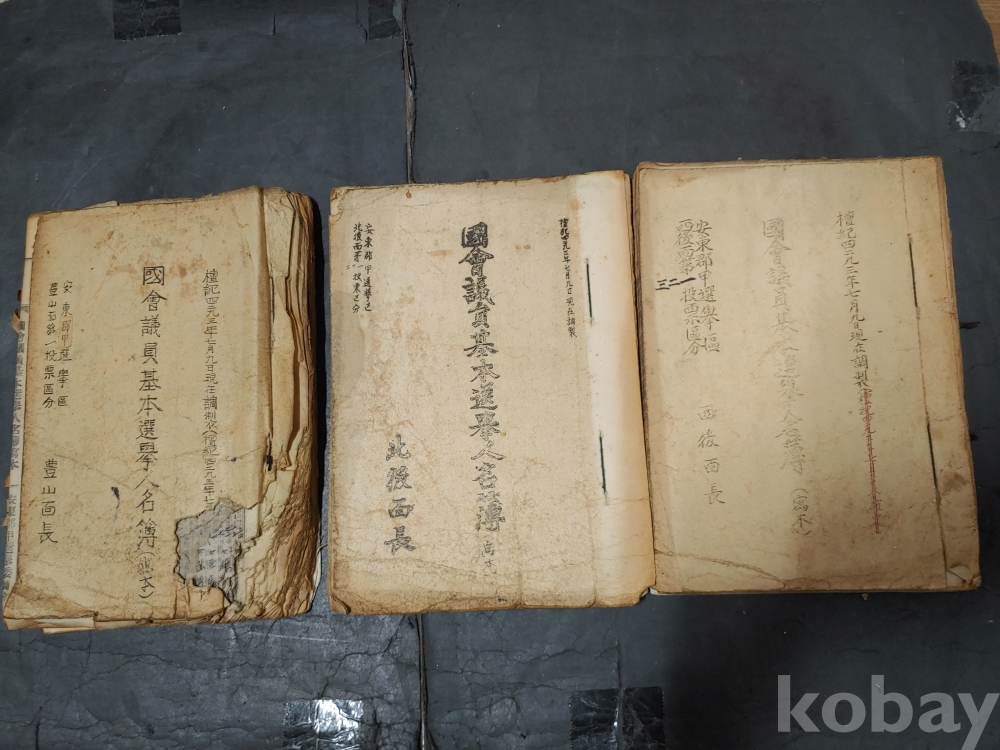 檀紀四二九三年七月九日現在調製(檀紀四二九三年七
國會議員基本選擧人名簿
安東郡甲選擧區
豊山面第一投票區分
豊山面長
檀紀四二九三年七月九日現在調製
國會議員基本選擧人名簿
安東郡甲選擧區
北後面第一投票区分
北後面長
檀紀四二九三年七月九日現在調製
國會議員基本選擧人名簿(寫本)
安東郡甲選擧區
西後面第
投票區分
西後面長
kobay